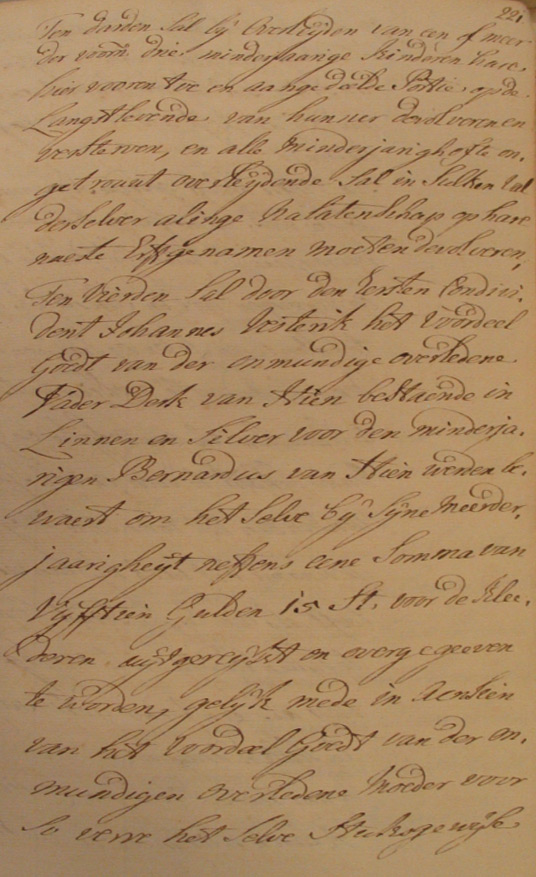 221
Ten darden Sal bij Overleijden van een of meer
der voorn drie minderjaarige Kinderen hare
hier vooren toe en aangedeelde Portie, op de
Langstlevende van hunner devolveren en
versterven, en alle Minderjarigh ofte on,
getrouwt overleijdende Sal in Sulken val
derselver alinge Nalatenschap op hare
naeste Erfgenamen moeten devolveren,
Ten Vierden Sal door den Eersten Condivi,
dent Johannes Vesterik het Voordeel
Goedt van der onmundige overledene
Vader Derk van Stien bestaende in
Linnen en Silver voor den minderja,
rigen Bernardus van Stien werden be,
waert om het Selve bij Sijne Meerder,
jaarigheijt neffens eene Somma van
Vijfftien Gulden 15 St. voor de Klee,
deren uijtgereijkt en overgegeeven
te worden, gelijk mede in aensien
van het Vordeel Goedt van der on,
mundigen overledene Moeder voor
So verre het Selve Stuksgewijse